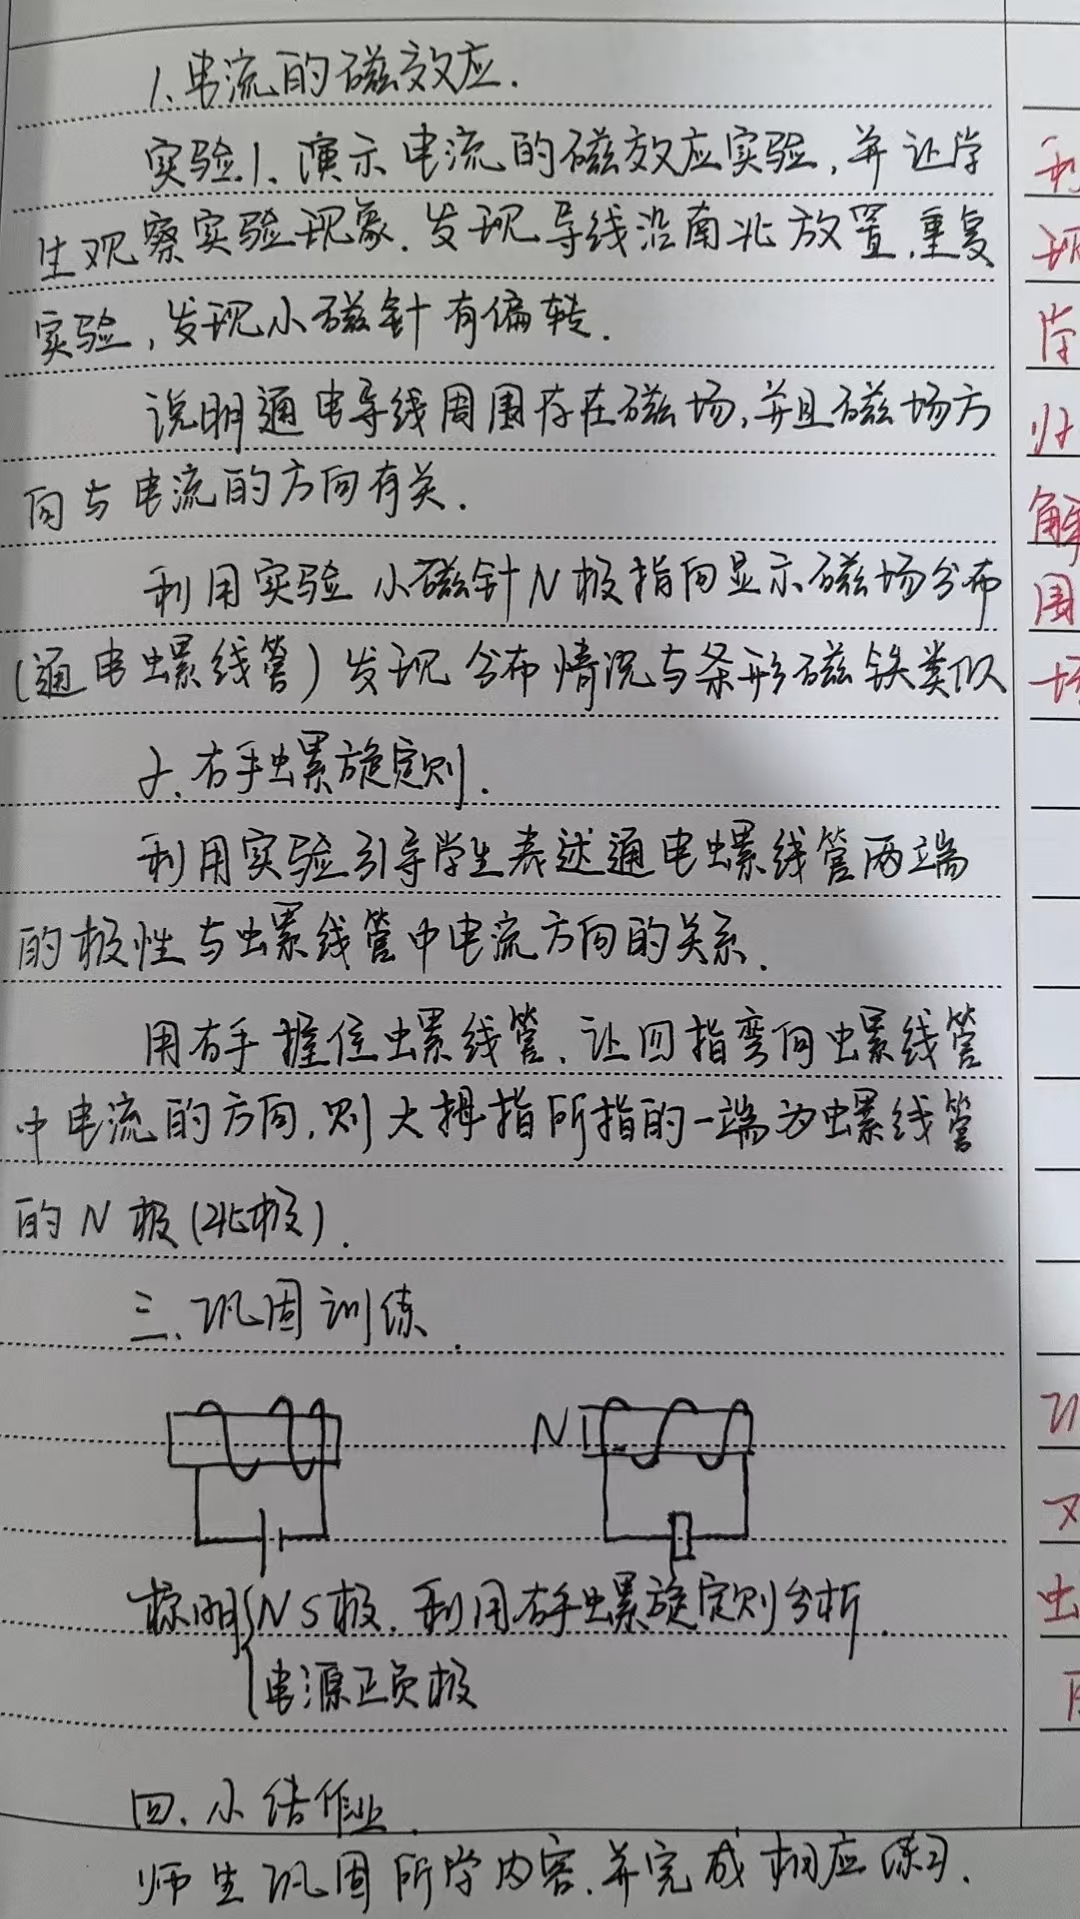 1、电流的磁效应.
实验1、演示电流的磁效应实验,并让学
生观察实验现象.发现导线沿南北放置,重复
实验,发现小磁针有偏转.
说明通电导线周围存在磁场,并且磁场方
向与电流的方向有关.
利用实验小磁针N极指向显示磁场分布
(通电螺线管)发现分布情况与条形磁铁类似
2、右手螺旋定则.
利用实验引导学生表述通电螺线管两端
的极性与螺线管中电流方向的关系.
用右手握住螺线管、让四指弯向螺线管
中电流的方向,则大拇指所指的一端为螺线管
的N极(北极).
三、巩固训练.
N
标明{NS极.利用右手螺旋定则分析.
电源正负极
四、小结作业.
师生巩固所学内容,并完成相应练习.
学
解
围
场